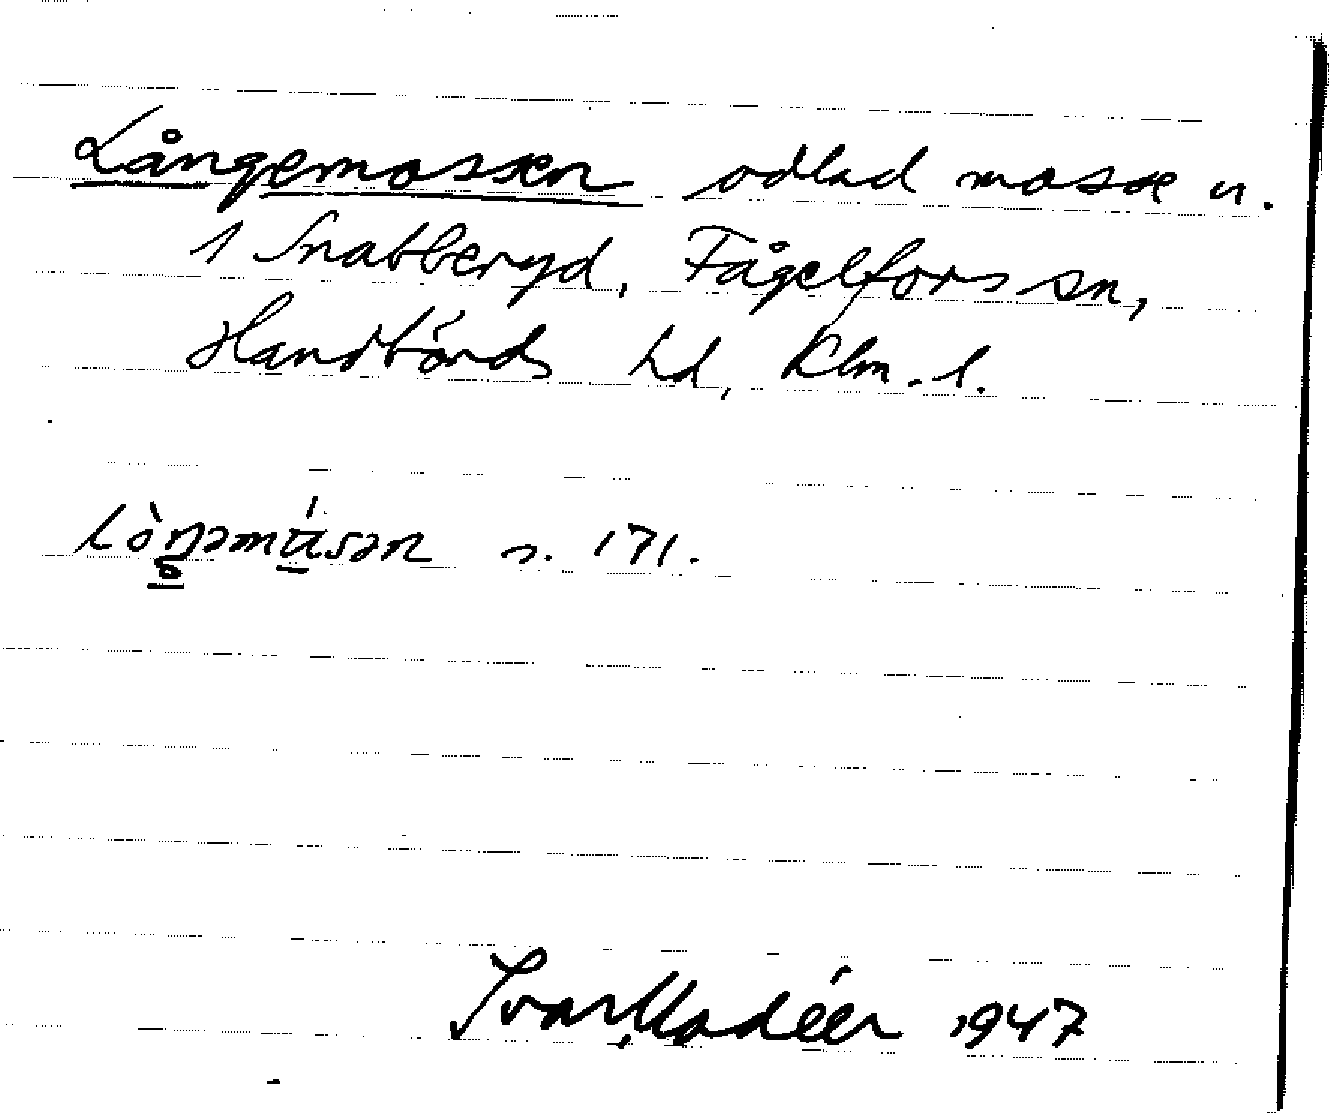 Långemossen odlad mosse u.
1 Snabberyd, Fågelfors sn,
Handbörds hd, Klm. l.
s. 171.
Ivar Modéer 1947